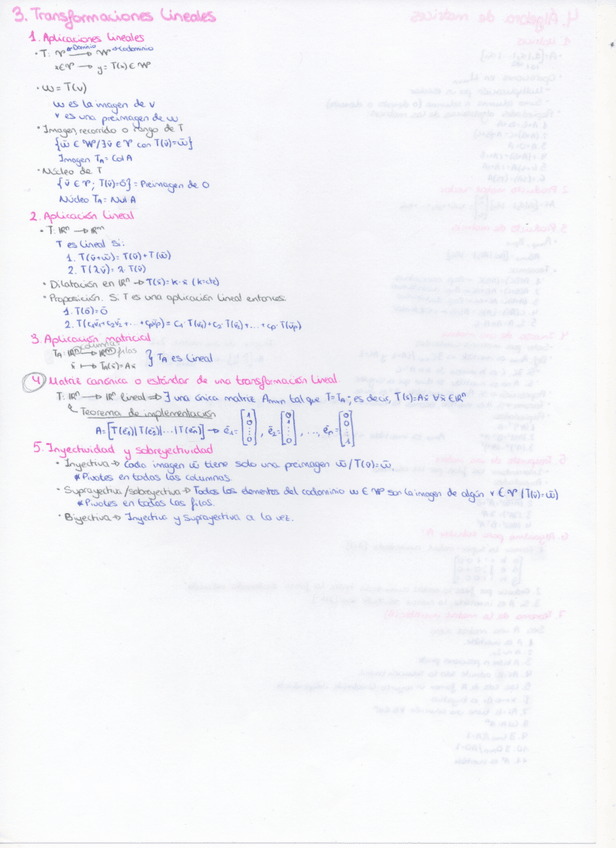 3. Transformaciones Lineales
1. Aplicaciones Lineales
· T: V → W
Dominio Codominio
x ∈ V → y = T(x) ∈ W
· w = T(v)
w es la imagen de v
v es una preimagen de w
· Imagen, recorrido o rango de T
{w̄ ∈ W / ∃ v̄ ∈ V con T(v̄) = w̄}
Imagen T_A = Col A
· Núcleo de T
{v̄ ∈ V ; T(v̄) = 0̄} = Preimagen de 0
Núcleo T_A = Nul A
2. Aplicación Lineal
· T: ℝⁿ → ℝᵐ
T es Lineal si:
1. T(v̄+w̄) = T(v̄) + T(w̄)
2. T(λv̄) = λ·T(v̄)
· Dilatación en ℝⁿ → T(x̄) = k·x̄ (k=cte)
· Proposición. Si T es una aplicación Lineal entonces:
1. T(0̄) = 0̄
2. T(c₁v̄₁ + c₂v̄₂ + ... + cₚv̄ₚ) = c₁·T(v̄₁) + c₂·T(v̄₂) + ... + cₚ·T(v̄ₚ)
3. Aplicación matricial
T_A: ℝⁿ columnas → ℝᵐ filas
x̄ ↦ T_A(x̄) = Ax̄ } T_A es Lineal
4. Matriz canónica o estándar de una transformación Lineal
T: ℝⁿ → ℝᵐ Lineal ⇒ ∃ una única matriz Aₘₓₙ tal que T = T_A; es decir, T(x̄) = Ax̄ ∀x̄ ∈ ℝⁿ
Teorema de implementación
A = [T(ē₁) | T(ē₂) | ... | T(ēₙ)] → ē₁ = [1 0 ⋮ 0], ē₂ = [0 1 ⋮ 0], ..., ēₙ = [0 0 ⋮ 1]
5. Inyectividad y sobreyectividad
· Inyectiva → Cada imagen w̄ tiene solo una preimagen v̄ / T(v̄) = w̄.
* Pivotes en todas las columnas.
· Suprayectiva/sobreyectiva → Todos los elementos del codominio w ∈ W son la imagen de algún v ∈ V / T(v̄) = w̄)
* Pivotes en todas las filas.
· Biyectiva → Inyectiva y Suprayectiva a la vez.